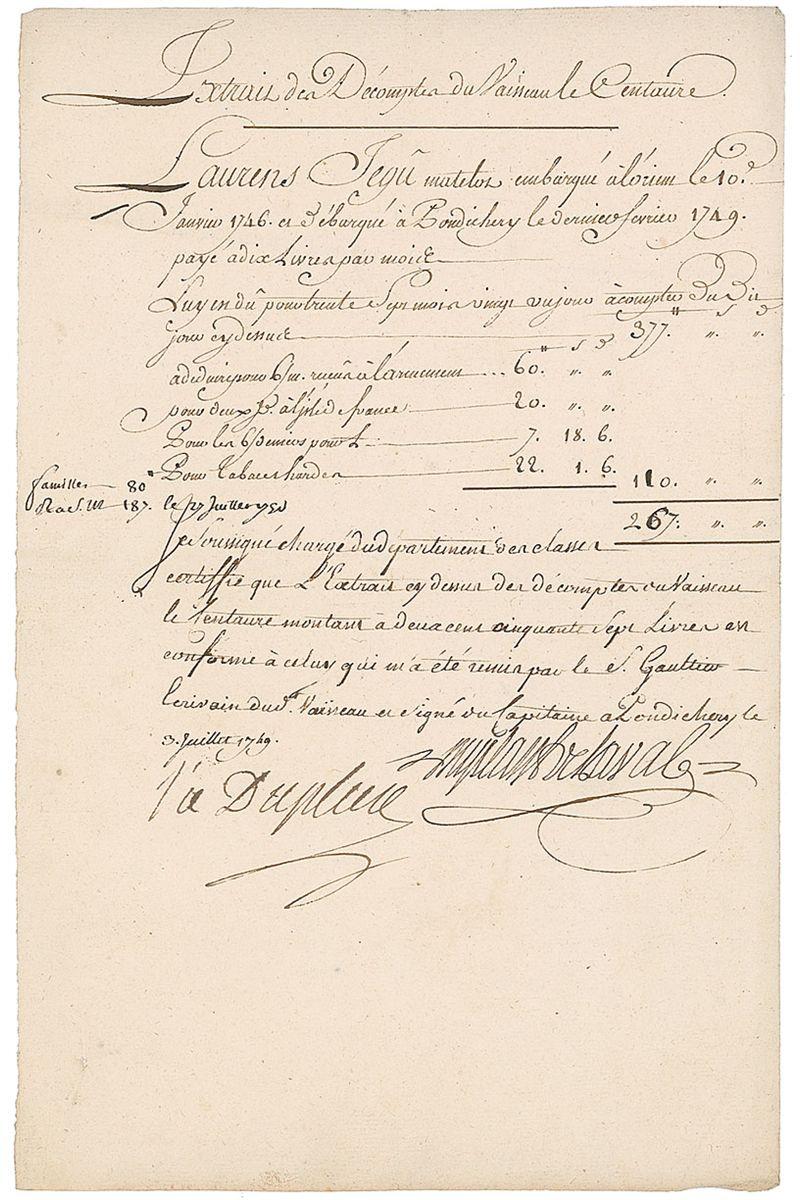 Extrait des Décomptes du Vaisseau le Centaure.
Laurens Jegû matelot embarqué à lórient le 10.e
Janvier 1746. et débarqué à Pondichery le dernier fevrier 1749.
payé à dix Livres par mois
Luy en dû pour trente Sept mois vingt un jour à compter Du Dit
jour cy dessus 377. " "
à deduire pour 6/m. recûs à l'armement ... 60. " "
pour deux à l'isle de france 20. " "
Pour les 6 deniers pour L 7. 18. 6.
Pour tabac et hardes 22. 1. 6.
110. " "
familles 80
187. le 27 Juillet 1750
267: " "
Je Soussigné chargé du département des classes
certiffie que L'Extrait cy dessus des décomptes du Vaisseau
le Centaure montant à deux cent cinquante Sept Livres est
conforme à celuy qui m'a été remis par le S. Gaultier
Ecrivain du d.t Vaisseau et Signé du Capitaine à Pondichery le
3. Juillet 1749.
Delaval
Vû Dupleix